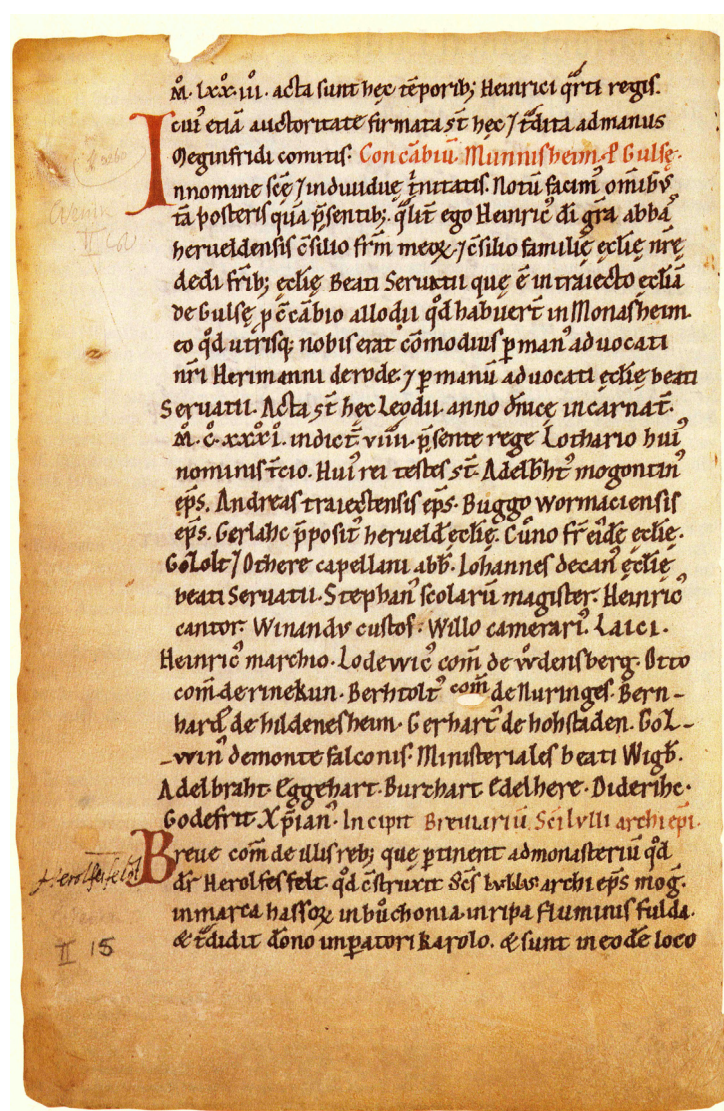 M̊. lxx̊. iiı̊. acta sunt hęc tēporibꝫ Heinrici qͥrti regis.
cuiꝰ etiā auctoritate firmata sт̄ hęc ⁊ t̄dita ad manus
Meginfridi comitis. Concābiū. Munnisheim. & Gulsę.
In nomine scę̄ ⁊ indiuiduę t̄nitatis. Notū facimꝰ omībꝰ
tā posteris quā p̄sentibꝫ. qͥlit̄ ego Heinricꝰ dī grā abbā
herueldensis c̄silio frm̄ meoꝝ. ⁊ c̄silio familię ęcłię nr̄ę
dedi fr̄ibꝫ ęcłię Beati Seruatii que ē in traiecto ęcłiā
de Gulsę p c̄cābio allodii qd̄ habuer̄t in Monasheim.
eo qd̄ utrisqꝫ nobis erat cōmodius p manꝰ aduocati
nr̄i Herimanni de rode. ⁊ p manū aduocati ęcłię beati
Seruatii. Acta sт̄ hęc Leodii. anno dn̄icę incarnat̄.
M̊. C̊. xxxı̊. indict̄. viiii. p̄sente rege Lothario huiꝰ
nominis t̄cio. Huiꝰ rei testes sт̄. Adelbh̄tꝰ mogontinꝰ
ep̄s. Andreas traiectensis ep̄s. Buggo wormaciensis
ep̄s. Gerlahc p̄positꝰ herueld̄ ęcłię. Cůno fr̄ eiꝰdē ęcłię.
Golołt ⁊ Othere capellani abb̄. Iohannes decanꝰ ęcłię
beati Seruatii. Stephanꝰ scolarū magister. Heinricꝰ
cantor. Winandꝰ custos. Willo camerariꝰ. Laici.
Heinricꝰ marchio. Lodewicꝰ com̄ de ẘdensberg. Otto
com̄ de rinekun. Berhtoltꝰ com̄ de Nuringes. Bern-
hardꝰ de hildenesheim. Gerhartꝰ de hohstaden. Gos-
-winꝰ de monte falconis. Ministeriales beati Wigb̄.
Adelbraht. Eggehart. Burchart. Edelhere. Diderihc.
Godefrit. Xp̄ianꝰ. Incipit Breuiariū Sc̄i lulli archiep̄i.
Breue com̄ de illis rebꝫ que ptinent ad monasteriū qd̄
dr̄ Herolfesfelt. qd̄ c̄struxit sc̄s lullus archieps̄ moḡ.
in marca hassoꝝ in bůchonia. in ripa fluminis fulda.
& t̄didit dōno imꝑatori karolo. & sunt in eodē loco
Herolfesfeldt
II 15